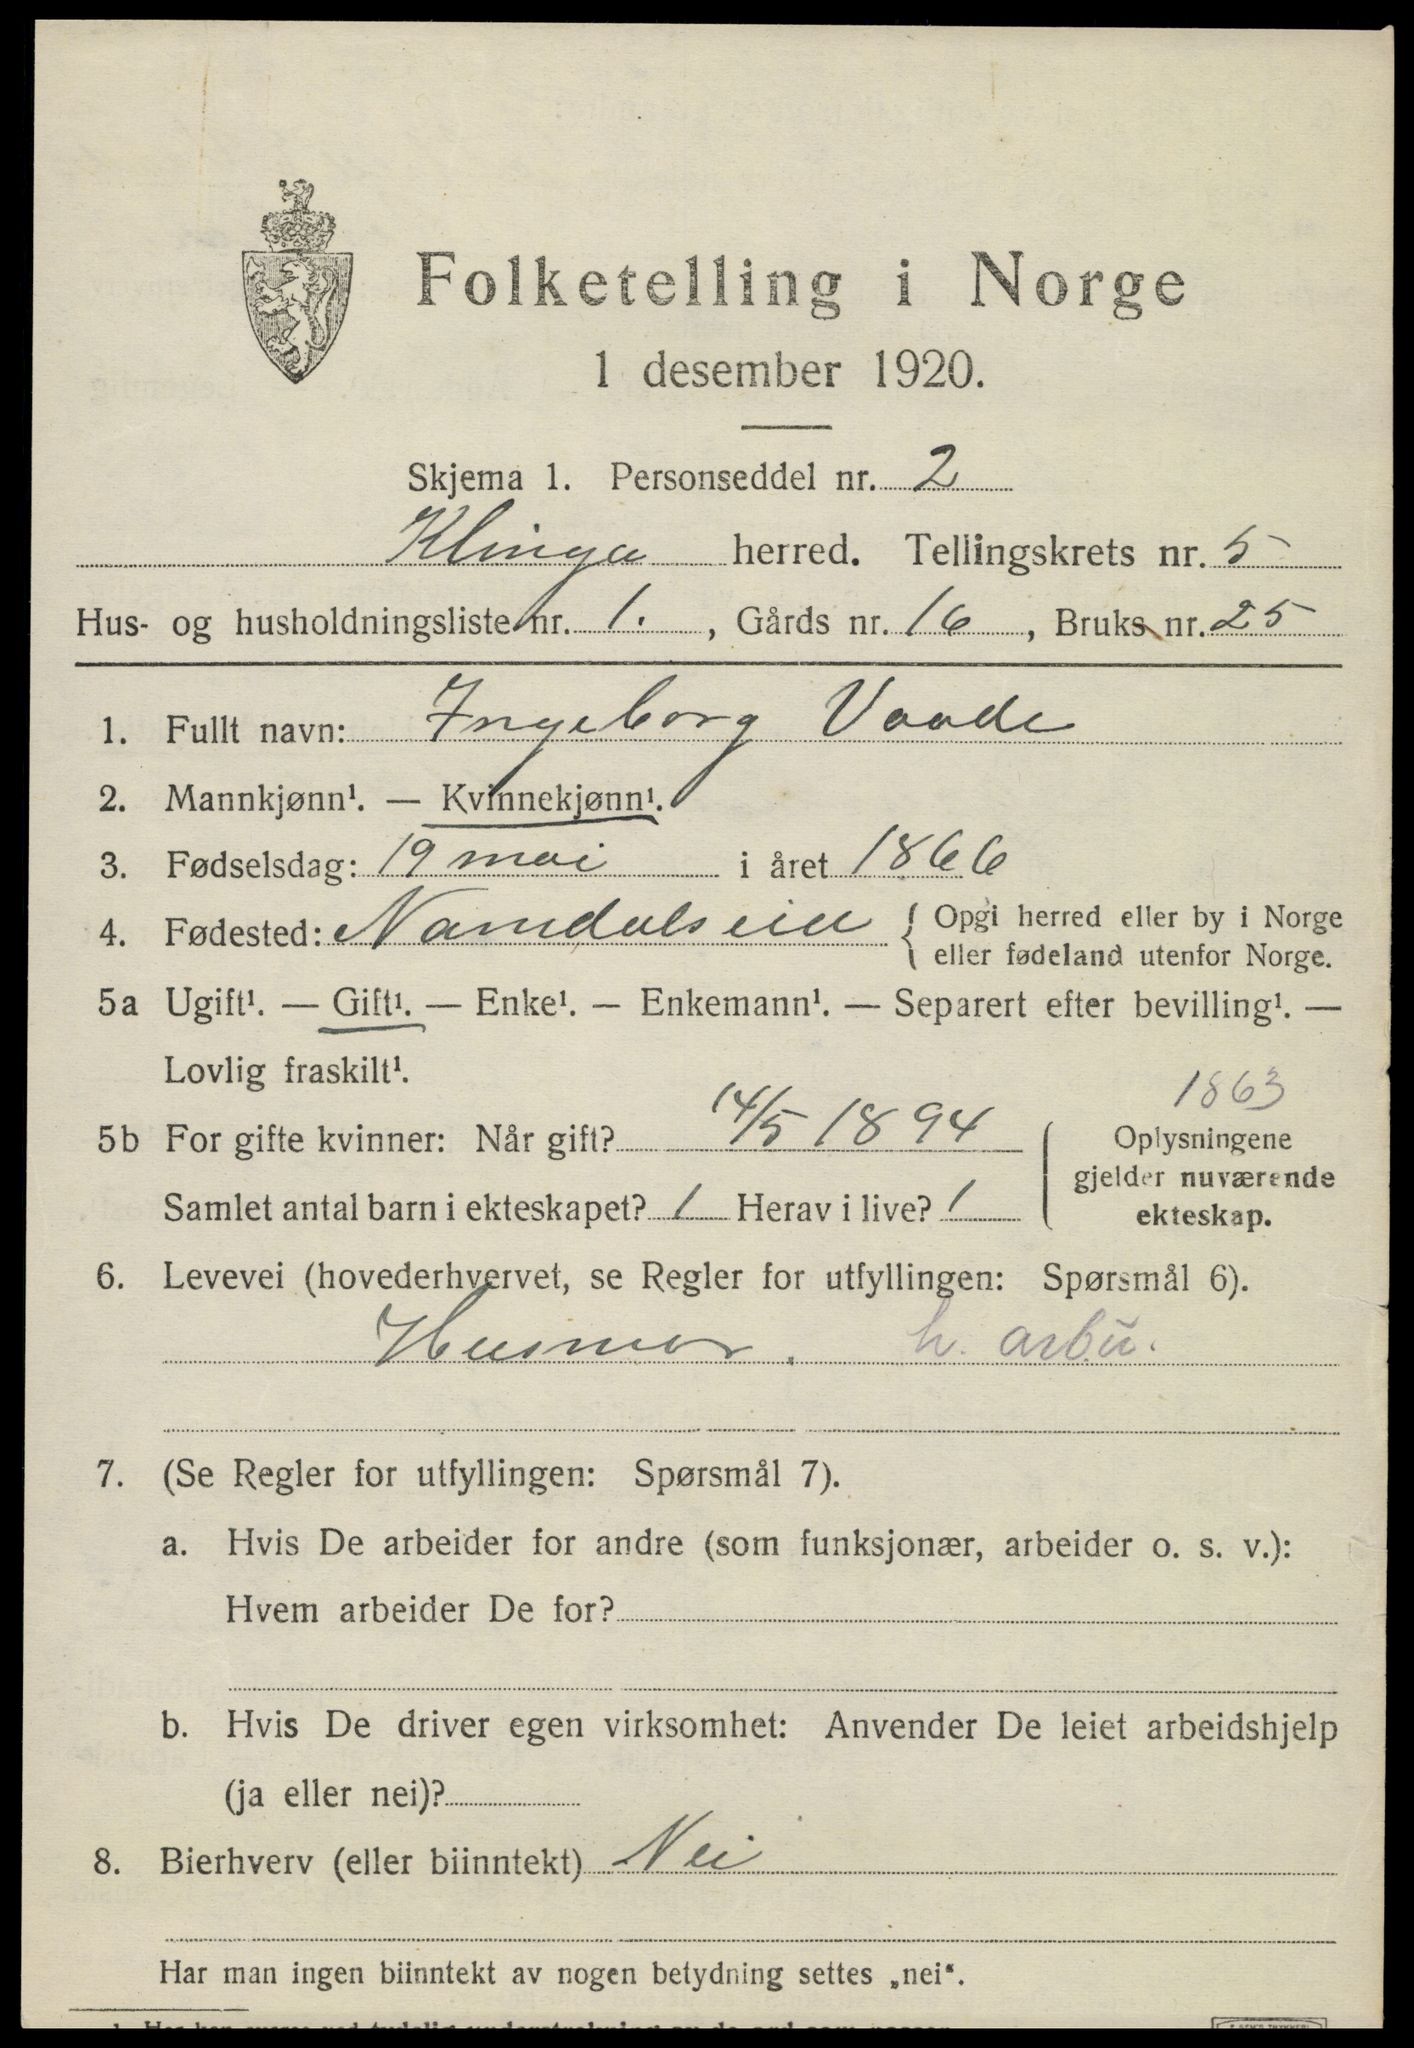 Folketelling i Norge
1 desember 1920.
Skjema 1. Personseddel nr. 2
Klinga herred. Tellingskrets nr. 5
Hus- og husholdningsliste nr. 1. , Gårds nr. 16 , Bruks nr. 25
1. Fullt navn: Ingeborg Vaade
2. Mannkjønn¹. — Kvinnekjønn¹.
3. Fødselsdag: 19 mai i året 1866
4. Fødested: Namdalseid { Opgi herred eller by i Norge
eller fødeland utenfor Norge.
5a Ugift¹. — Gift¹. — Enke¹. — Enkemann¹. — Separert efter bevilling¹. —
Lovlig fraskilt¹.
1863
5b For gifte kvinner: Når gift? 14/5 1894 Oplysningene
gjelder nuværende
Samlet antal barn i ekteskapet? 1 Herav i live? 1 ekteskap.
6. Levevei (hovederhvervet, se Regler for utfyllingen: Spørsmål 6).
Husmor. h. arbu.
7. (Se Regler for utfyllingen: Spørsmål 7).
a. Hvis De arbeider for andre (som funksjonær, arbeider o. s. v.):
Hvem arbeider De for?
b. Hvis De driver egen virksomhet: Anvender De leiet arbeidshjelp
(ja eller nei)?
8. Bierhverv (eller biinntekt) Nei
Har man ingen biinntekt av nogen betydning settes „nei“.